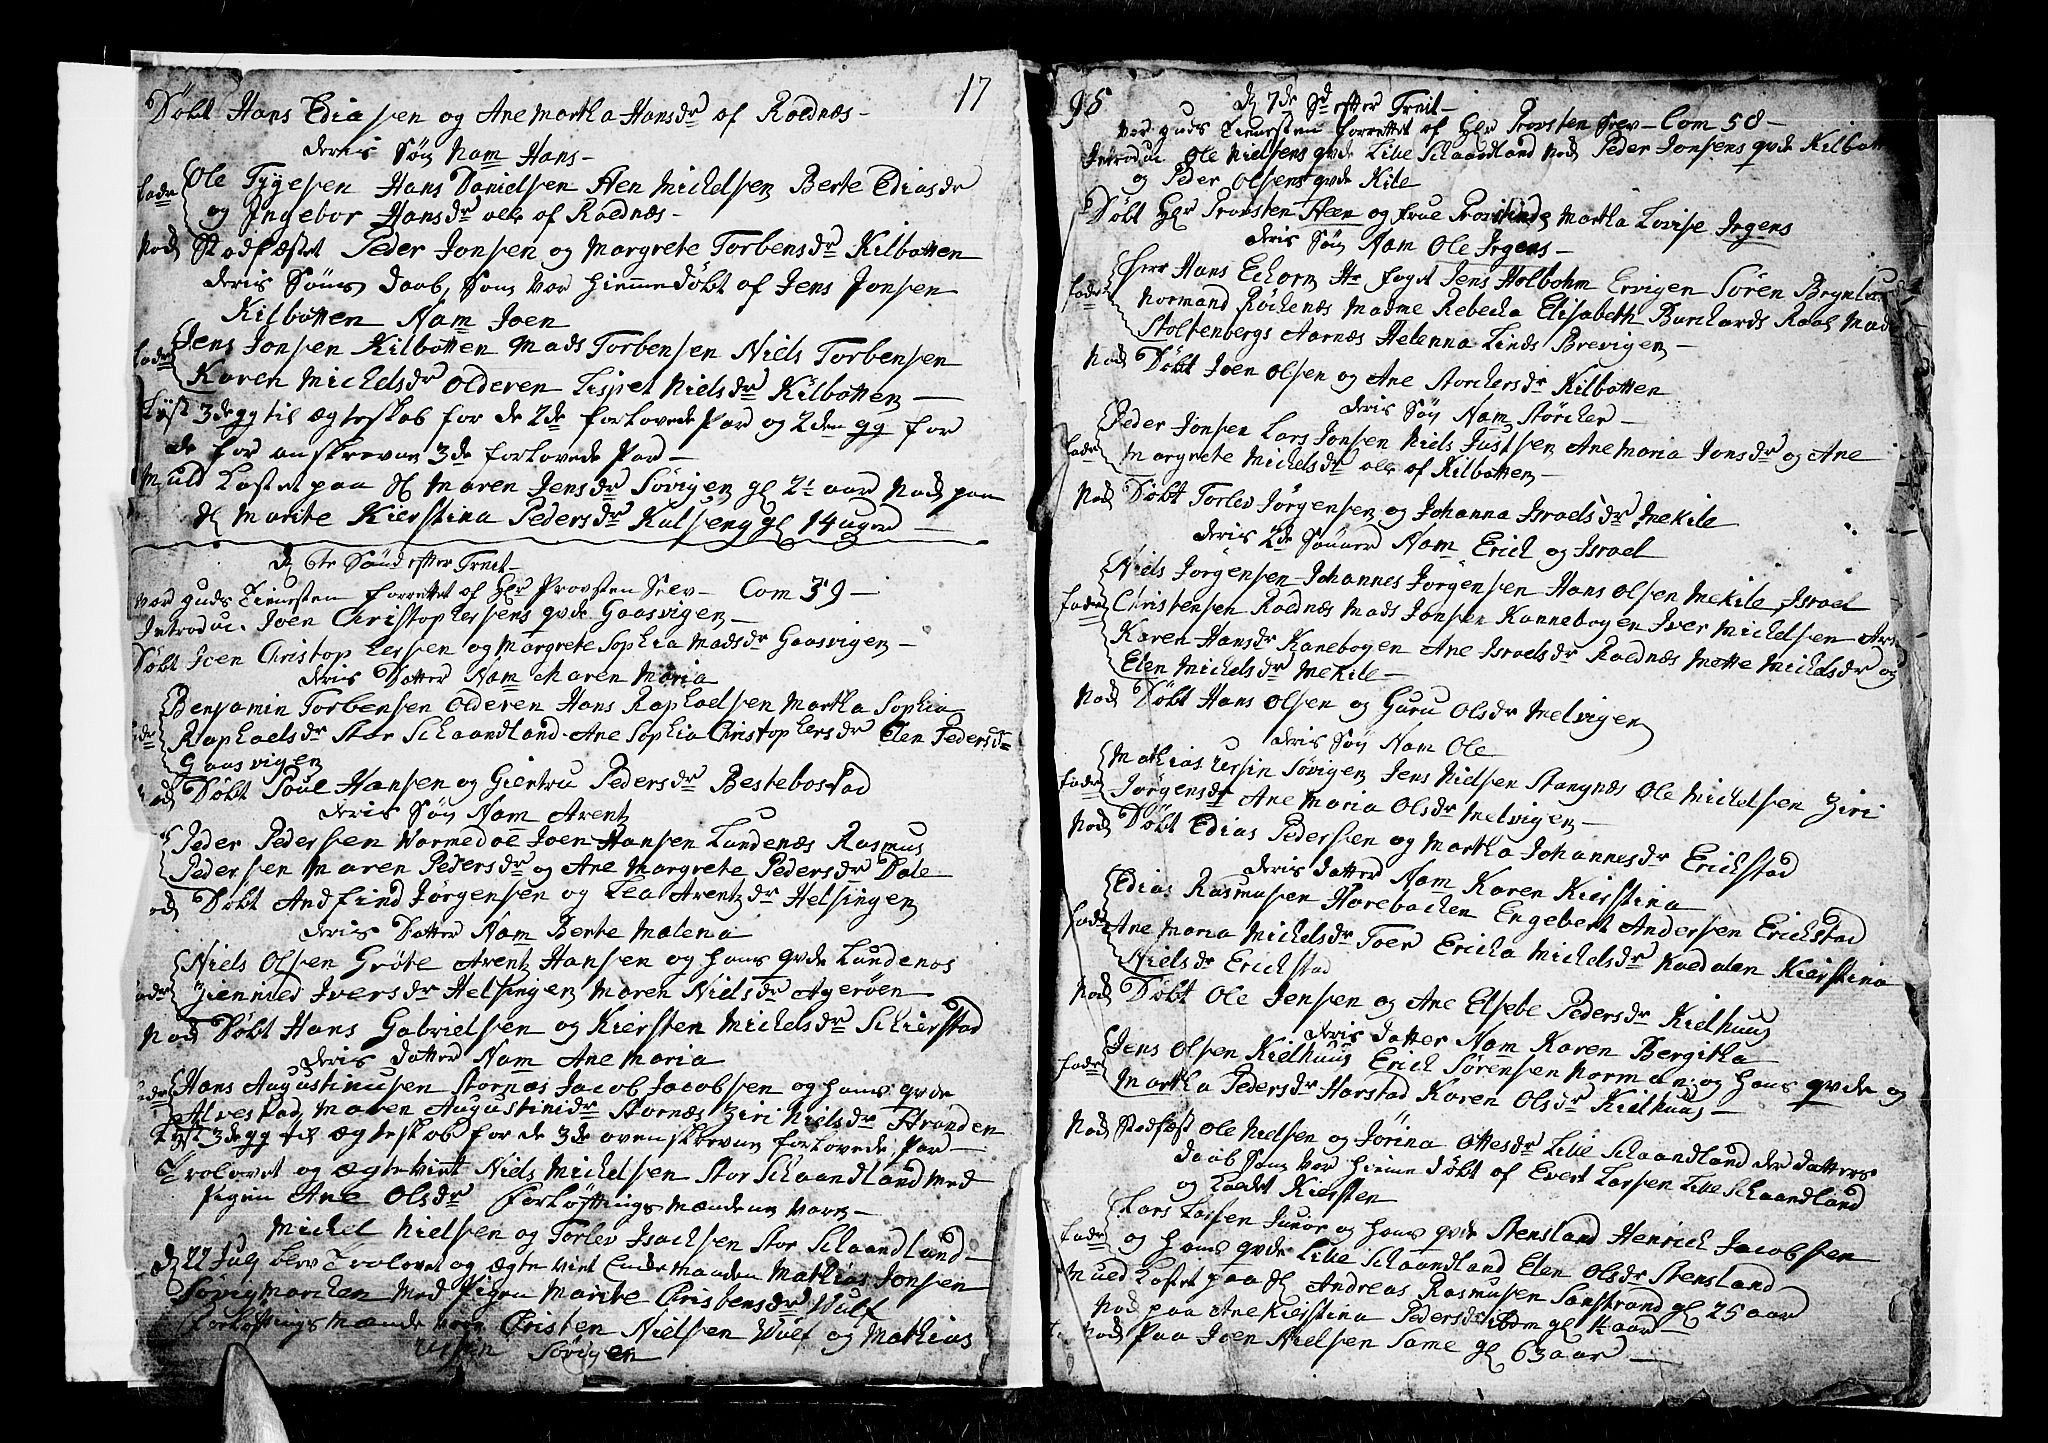 17
Döbt Hans Ediasen og Ane Martha Hansdr af Roednæs -
deris Søn Nam Hans -
fadr Ole Tygesen Hans Danielsen Hen Michelsen Berte Ediasdr
og Ingebor Hansdr alle af Roednæs -
Nod Stadfæstet Peder Jonsen og Margrete Torbensdr Kilbotten
deris Søns Daab, Som var hiemmedöbt af Jens Jonsen
Kilbotten Nam Joen
fadr Jens Jonsen Kilbotten Mads Torbensen Niels Torbensen
Karen Michelsdr Olderen Lispet Nielsdr Kilbotten -
Lyst 3de gg til ægteskab for de 2de forlovede Par og 2den gg for
de for anskrevne 3de forlovede Par -
Muld Kastet paa Maren Jensdr Sövigen gl 2½ aar Nod paa
Marite Kierstina Pedersdr Kulseng gl 14 uger
D 6te Sønd efter Treit -
var guds Tienesten forrettet af Hr Provsten Selv - Com 39 -
Introduc. Joen Christophersens qvde Gaasvigen -
Döbt Joen Christophersen og Margrete Sophia Madsdr Gaasvigen -
deris Datter Nam Maren Maria
Benjamin Torbensen Olderen Hans Raphaelsen Martha Sophia
Raphaelsdr Stor Schaandland Ane Sophia Christophersdr Elen Pedersdr
Gaasvigen
Döbt Poul Hansen og Giertru Pedersdr Bestebostad
deris Søn Nam Arentz
Peder Pedersen Wormedal Joen Hansen Lundenæs Rasmus
Pedersen Maren Pedersdr og Ane Margrete Pedersdr Dale
Döbt Andfind Jörgensen og Lea Arentzdr Helsingen
deris Datter Nam Berte Malena
Niels Olsen Gröte Arentz Hansen og hans qvde Lundenæs
Iversdr Helsingen Maren Nielsdr Ageröen
Nod Döbt Hans Gabrielsen og Kiersten Michelsdr Schierstad
deris datter Nam Ane Maria
fadr Hans Augustinusen Stornæs Jacob Jacobsen og hans qvde
Maren Augustinidr Stornæs Ziri Nielsdr Stranden
Lyst 3de gg til ægteskab for de 3de ovenskrevne forlovede Par -
Trolovet og ægteviet Niels Michelsen Stor Schaandland med
Pigen Ane Olsdr forløftnings Mændene vare -
Michel Nielsen og Torlev Isachsen Stor Schaandland -
D 22 July blev Trolovet og ægte viet Enkemanden Mathias Jonsen
Sövigmarchen med Pigen Marite Christensdr Wulf
forløftnings mænde vare Christen Nielsen Wulf og Mathias
Ursin Sövigen
D 7de Sd efter Treit -
var guds Tienesten forrettet af Hr Provsten Selv - Com 58 -
Introduc Ole Nielsens qvde Lille Schaandland Nod Peder Jonsens qvde Kilbotten
og Peder Olsens qvde Kile
Döbt Hr Provsten Heen og frue Provstinde Martha Lovise Irgens
deris Søn Nam Ole Irgens -
fadr Herr Hans Echorn Hr foget Jens Holbohm Ervigen Sören
Normand Röchenæs Madme Rebecka Elisabeth Burchards Roaes Made
Stoltenbergs Aarnæs Helenna Linds Brevigen -
Nod Döbt Joen Olsen og Ane Storchersdr Kilbotten
deris Søn Nam Störcher -
fadr Peder Jonsen Lars Jonsen Niels Justsen Ane Maria Jonsdr og Ane
Margrete Michelsdr alle af Kilbotten -
Nod Döbt Torlev Jörgensen og Johanna Israelsdr Mekile
deris 2de Sønner Nam Erich og Israel
fadr Niels Jörgensen Johannes Jörgensen Hans Olsen Mekile Israel
Christensen Roednæs Mads Jonsen Kannebogen Iver Michelsen
Karen Hansdr Kanebogen Ane Israelsdr Roednæs Mette Michelsdr og
Elen Michelsdr Mekile -
Nod Döbt Hans Olsen og Guru Olsdr Melvigen
deris Søn Nam Ole
fadr Mathias Ursin Sövigen Jens Nielsen Stangnæs Ole Michelsen Ziri
Jörgensdr Ane Maria Olsdr Melvigen -
Nod Döbt Edias Pedersen og Martha Johannesdr Erichstad
deris datter Nam Karen Kierstina
fadr Edias Rasmusen Harebacken Engebert Andersen Erichstad
Ane Maria Michelsdr Toer Ericha Michelsdr Kaedalen Kierstina
Nielsdr Erichstad
Nod Döbt Ole Jensen og Ane Elsebe Pedersdr Kielhuus
deris datter Nam Karen Bergitha
fadr Jens Olsen Kielhuus Erich Sörensen Norman og hans qvde og
Martha Pedersdr Harstad Karen Olsdr Kielhuus -
Nod Stadfæst Ole Nielsen og Jörina Ottesdr Lille Schaandland der datters
daab Som var hieme döbt af Evert Larsen Lille Schaandland
og kaldet Kiersten
fadr Lars Larsen Junor og hans qvde Stensland Henrich Jacobsen
og hans qvde Lille Schaandland Elen Olsdr Stensland
Muld Kastet paa Andreas Rasmusen Sanstrand gl 25 aar
Nod paa Ane Kierstina Pedersdr ibdm gl ½ aar -
Nod Paa Joen Nielsen Same gl 63 aar -